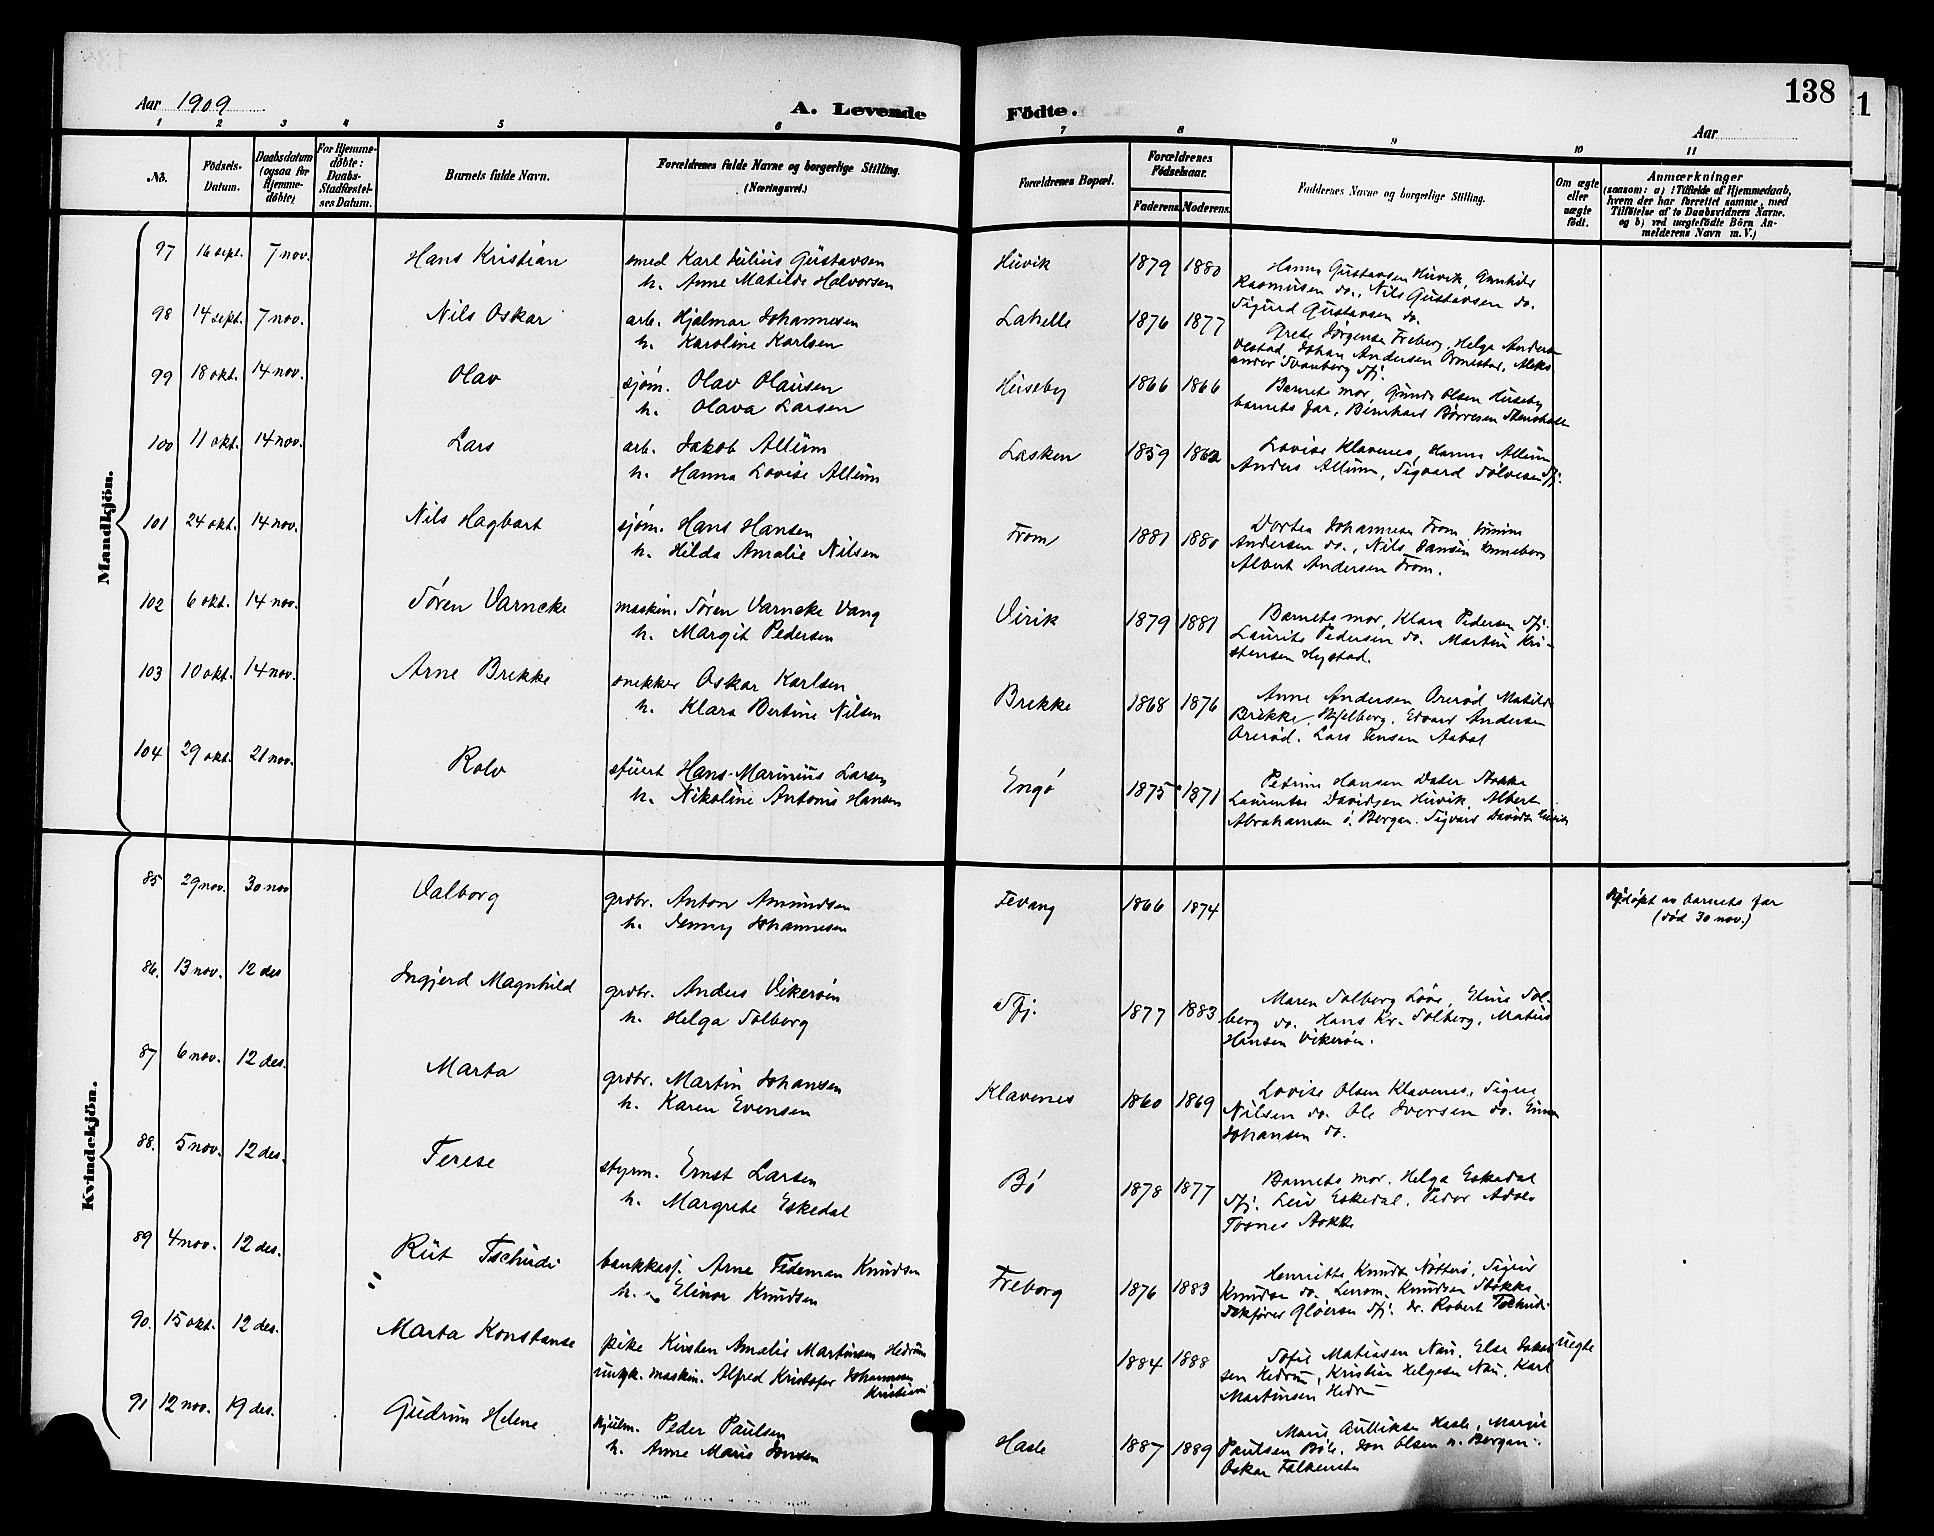 138
Aar 1909
A. Levende Födte.
Aar
1 2 3 4 5 6 7 8 9 10 11
No.
Födsels-Datum.
Daabsdatum (ogsaa for Hjemmedöbte)
For Hjemmedöbte: Daabs-Stadfæstelses Datum.
Barnets fulde Navn.
Forældrenes fulde Navne og borgerlige Stilling. (Næringsvei.)
Forældrenes Bopæl.
Forældrenes Födselsaar.
Faderens. Moderens.
Faddernes Navne og borgerlige Stilling.
Om ægte eller uægte födt.
Anmærkninger
(saasom: a) i Tilfælde af Hjemmedaab, hvem der har forrettet samme, med Tilföielse af to Daabsvidners Navne, og b) ved uægtefödte Börn Anmelderens Navn m. V.)
Mandkjön.
97 16 sept. 7 nov. Hans Kristian smed Karl Julius Gustavsen Huvik 1879 1880 Hanna Gustavsen Huvik, Gunhild
h. Anne Matilde Halvorsen Rasmusen do., Nils Gustavsen do.
Sigurd Gustavsen do.
98 14 sept. 7 nov. Nils Oskar arb. Hjalmar Johannesen Lahelle 1876 1877 Grete Jørgensen Freberg, Helga Andersen
h. Karoline Karlsen Johan Andersen
99 18 okt. 14 nov. Olav sjøm. Olav Olausen Huseby 1866 1866 Barnets mor, Gunda Olsen Huseby
h. Olava Larsen barnets far, Bernhard Børresen
100 11 okt. 14 nov. Lars arb. Jakob Allum Lasken 1859 1862 Lovise Klavenes, Hanna Allum
h. Hanna Lovise Allum Anders Allum, Sigvard Sølvesen Sfj.
101 24 okt. 14 nov. Nils Hagbart sjøm. Hans Hansen From 1881 1880 Dortea Johannesen From
h. Hilda Amalie Nilsen Andersen do., Nils Jansen Unneberg
Albert Andersen From.
102 6 okt. 14 nov. Søren Varncke maskin. Søren Varncke Vang Virik 1879 1881 Barnets mor, Klara Pedersen Sfj.
h. Margit Pedersen Laurits Pedersen do. Martin Kri-
stensen Hystad.
103 10 okt. 14 nov. Arne Brekke snekker Oskar Karlsen Brekke 1868 1876 Anne Andersen Orerød Matilde
h. Klara Bertine Nilsen Brekke, Hjelberg, Edvard Andersen
Orerød. Lars Jensen
104 29 okt. 21 nov. Rolv stuert Hans Marinius Larsen Engø 1875 1871 Petrine Hansen Stokke
h. Nikoline Antonie Hansen Laurentse Davidsen Huvik, Albert
Abrahamsen ø. Bergan. Sigvard Davids. Huvik
Kvindekjön.
85 29 nov. 30 nov Valborg grdbr. Anton Amundsen Fevang 1866 1874 Nøddøpt av barnets far
h. Jenny Johannesen (død 30 nov.)
86. 13 nov. 12 des Ingjerd Magnhild grdbr. Anders Vikerøin Sfj. 1877 1883 Maren Solberg Løve, Eline Sol-
h. Helga Solberg berg do. Hans Kr. Solberg, Matius
Hansen Vikerøin.
87 6 nov. 12 des. Marta grdbr. Martin Johansen Klavenes 1860 1869 Lovise Olsen Klavenes, Signe
h. Karen Evensen Nilsen do. Ole Iversen do. Einar
Johansen do.
88. 5 nov. 12 des. Terese styrm. Ernst Larsen Bø 1878 1877 Barnets mor, Helga Eskedal
h. Margrete Eskedal Sfj. Leiv Eskedal, Peder
Stokke
89 4 nov. 12 des. Rut Tschudi bankkass. Arne Tideman Knudsen Freborg 1876 1883 Henriette Knudsen Nøtterø, Sigrid
h. Elinor Knudsen Knudsen do. Knudsen Stokke
Gløersen Sfj. dr. Robert Tschudi
90. 15 okt. 12 des. Marta Konstanse pike Kirsten Amalie Martinsen Hedrum 1884 1888 Sofie Matiasen Nau, Else Jakob- uegte
ungk. maskin. Alfred Kristofer Johannsen Kristiania sen Hedrum, Kristian Helgesen Nau, Karl
Martinsen Hedrum
91 12 nov. 19 des. Gudrun Helene hjulm. Peder Paulsen Hasle 1887 1889 Marie Hasle, Margit
h. Anne Marie Jonsen Paulsen Bøle, Jon Olsen n. Bergan.
Oskar Falkensten